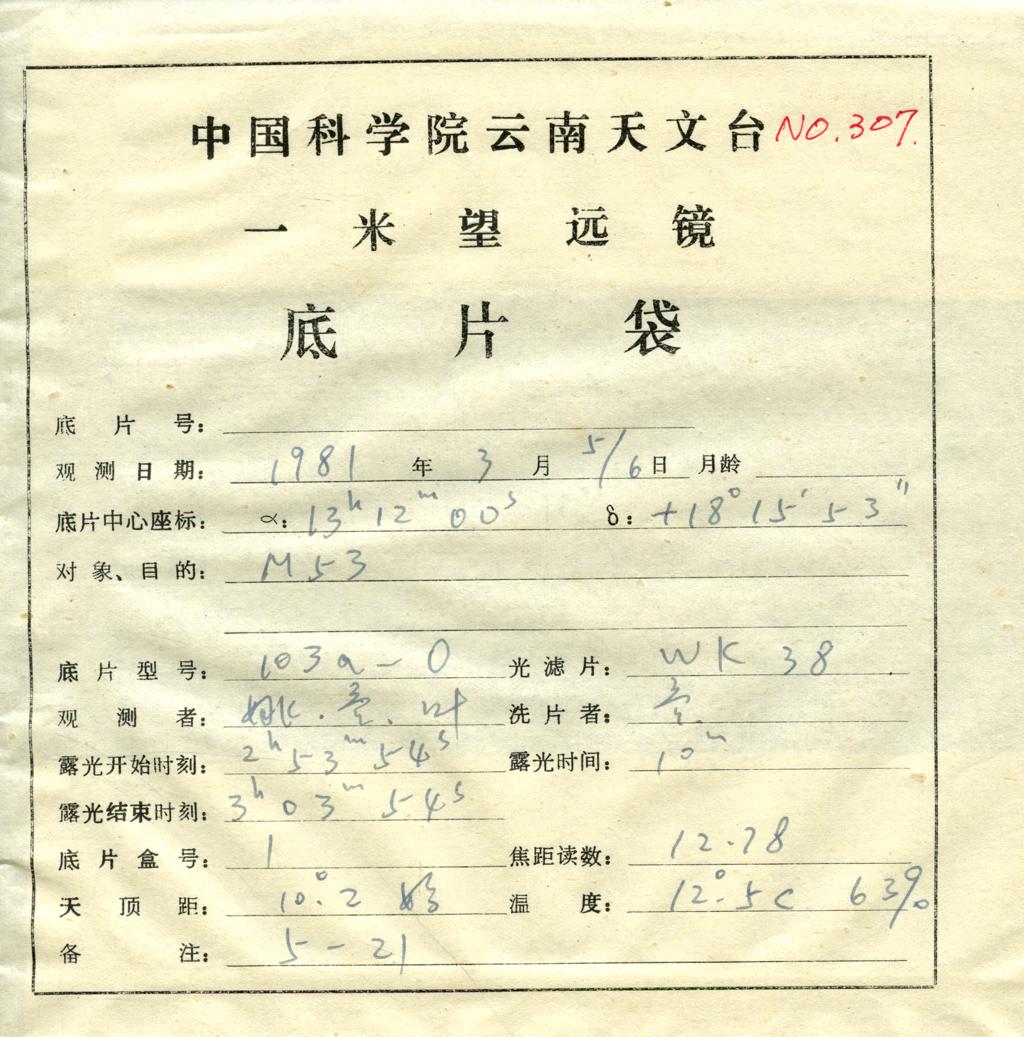 中国科学院云南天文台 NO.307.
一米望远镜
底片袋
底片号：
观测日期：1981年3月5/6日 月龄
底片中心座标：α：13h12m00s δ：+18°15′53″
对象、目的：M53
底片型号：103a-O 光滤片：WK 38
观测者：姚. . 叶 洗片者：
露光开始时刻：2h53m54s 露光时间：10m
露光结束时刻：3h03m54s
底片盒号：1 焦距读数：12.78
天顶距：10°.2 好 温度：12°.5C 63%
备注：5-21